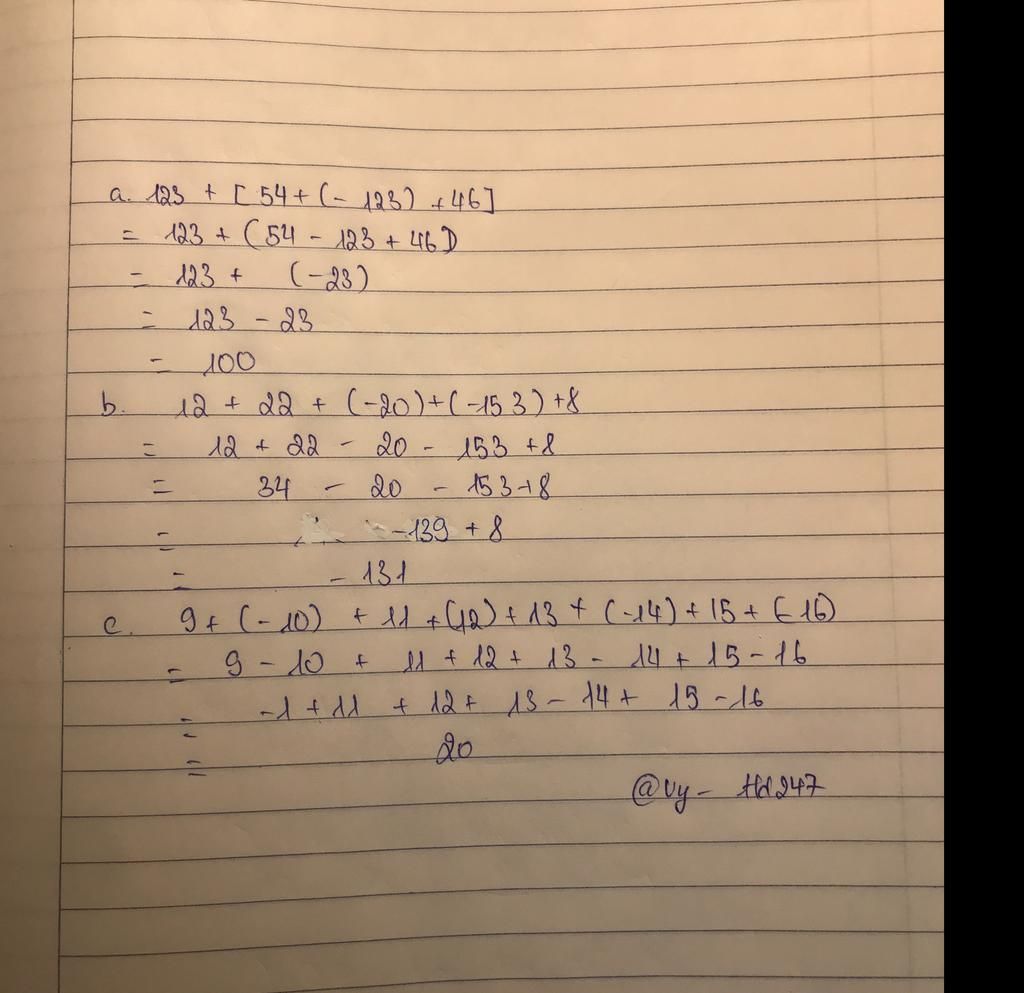 a. 123 + [54 + (-123) + 46]
= 123 + (54 - 123 + 46)
= 123 + (-23)
= 123 - 23
= 100
b. 12 + 22 + (-20) + (-153) + 8
= 12 + 22 - 20 - 153 + 8
= 34 - 20 - 153 + 8
= -139 + 8
= - 131
c. 9 + (-10) + 11 + (12) + 13 + (-14) + 15 + (-16)
= 9 - 10 + 11 + 12 + 13 - 14 + 15 - 16
= -1 + 11 + 12 + 13 - 14 + 15 - 16
= 20
@Vy - Hd247